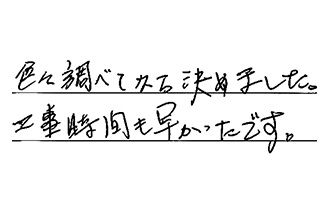 色々調べてから決めました。
工事時間も早かったです。